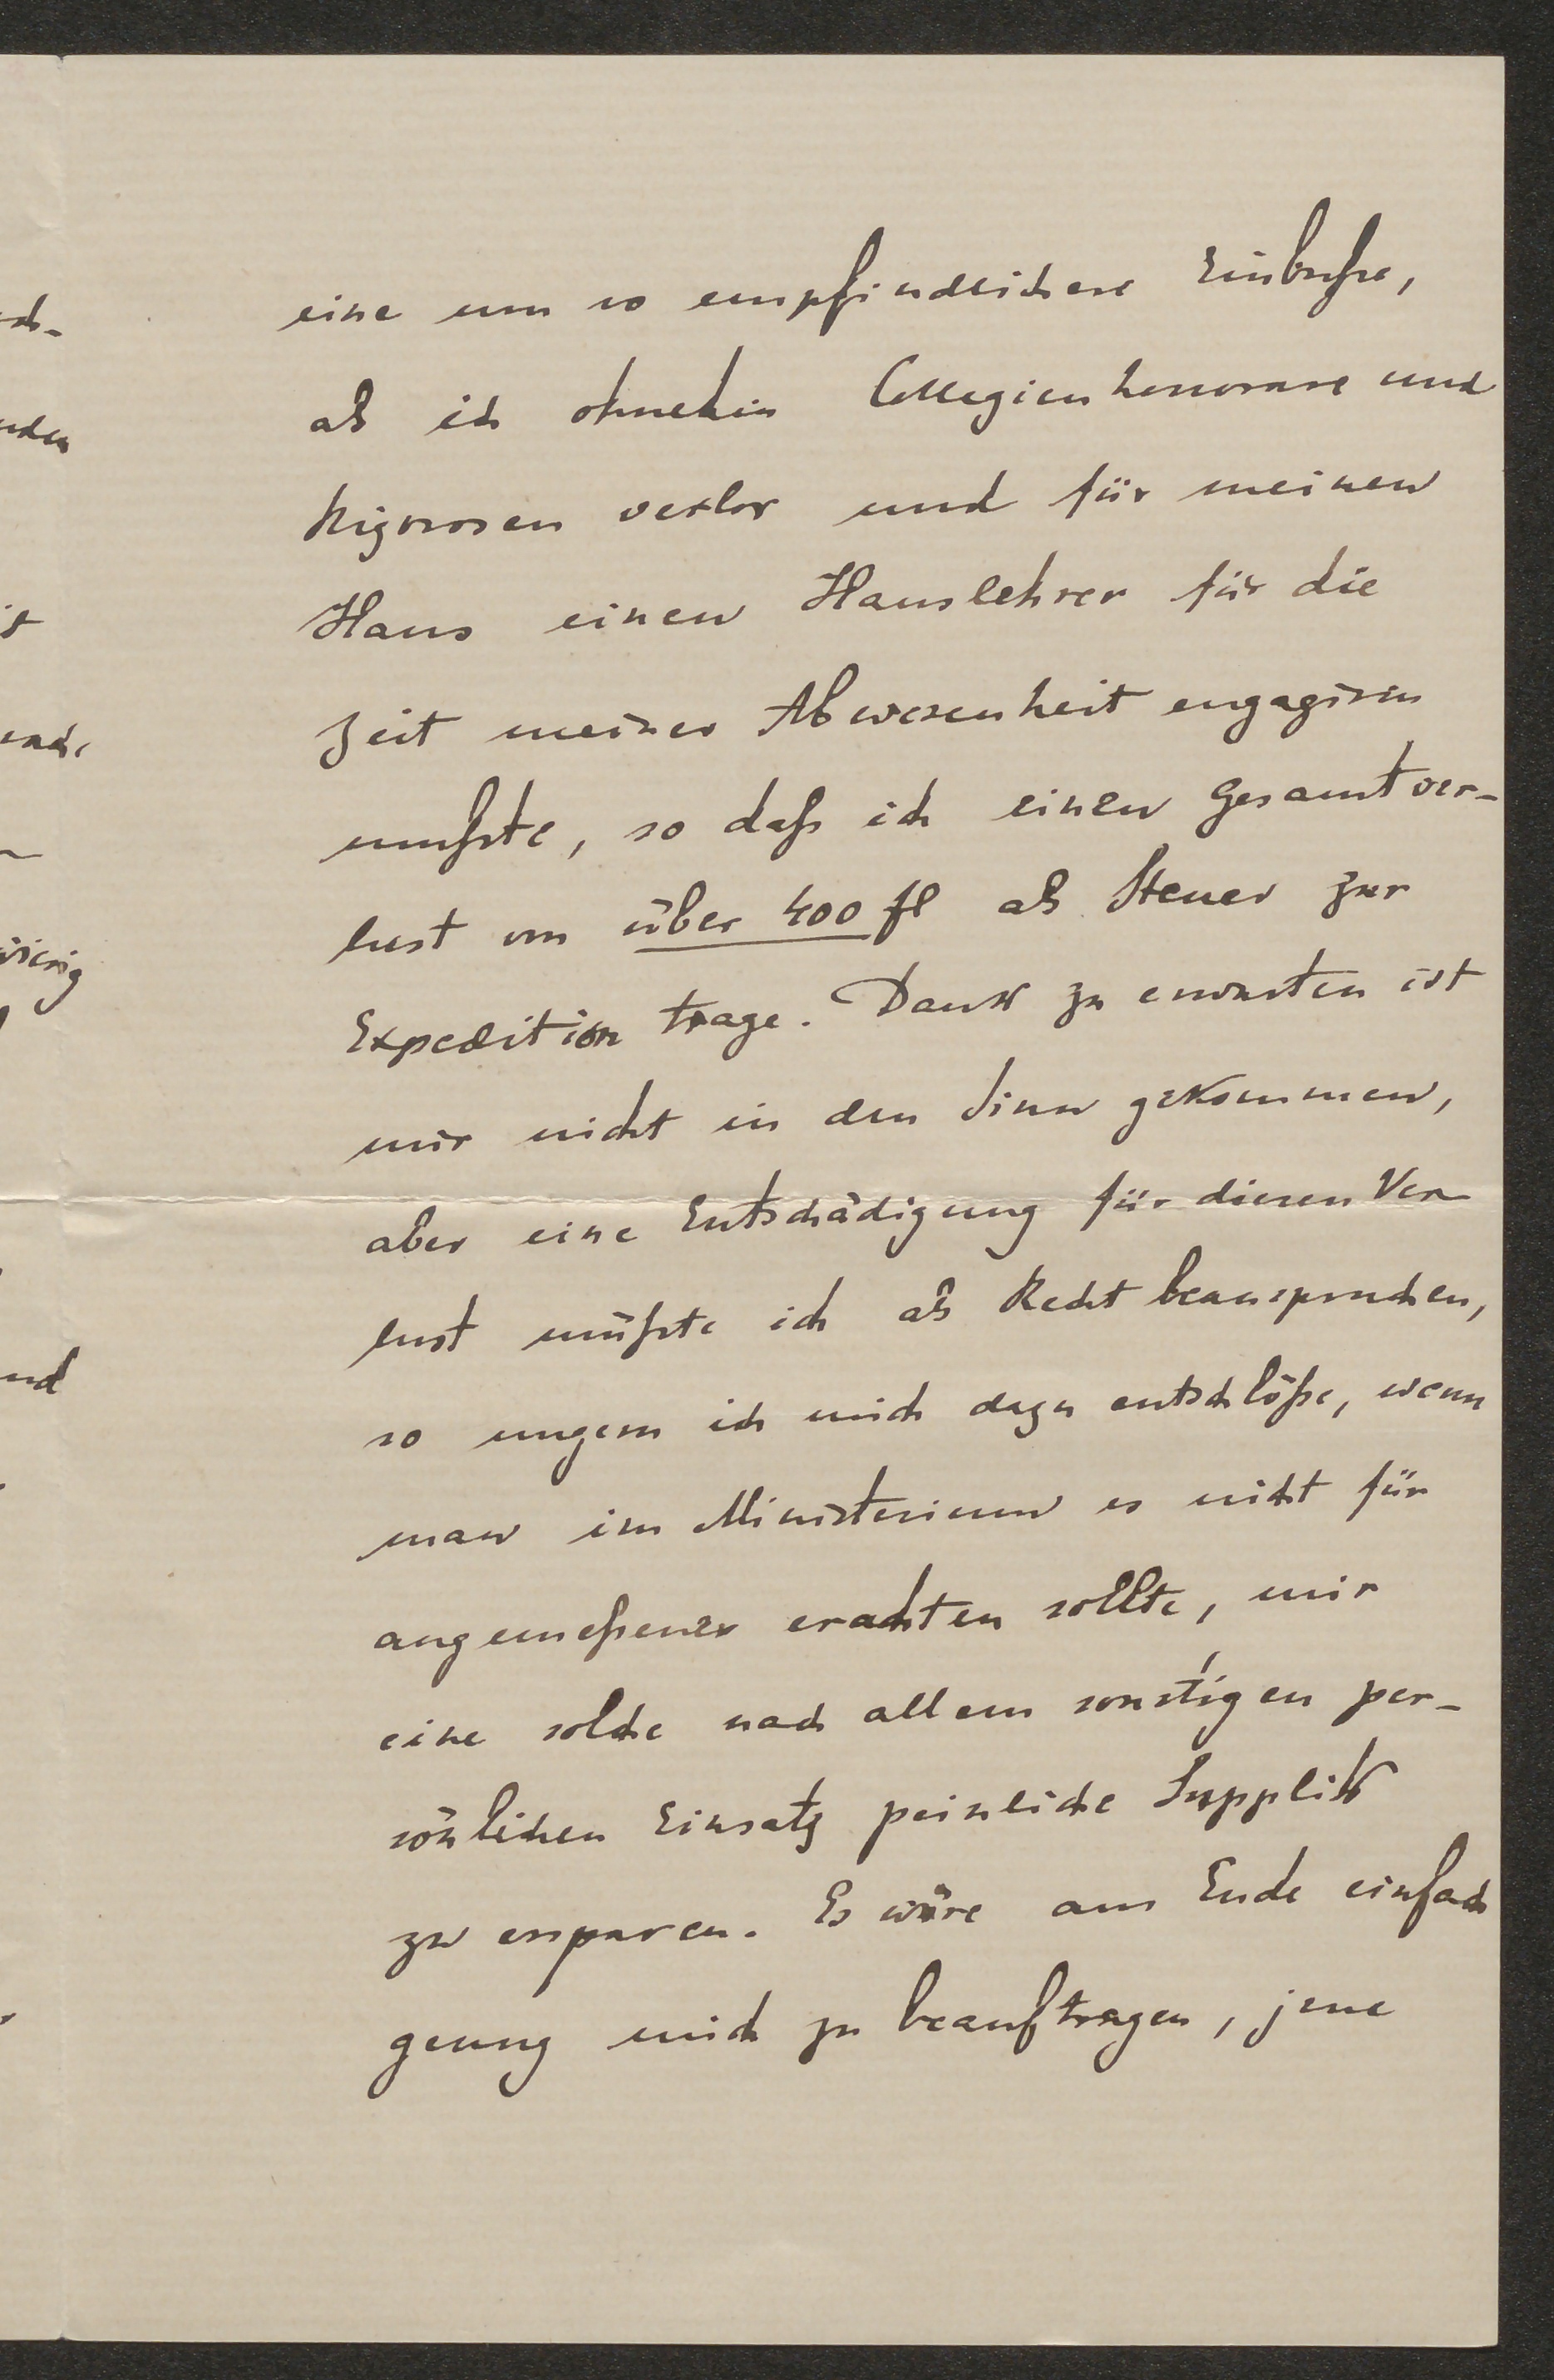 eine um so empfindlichere Einbuße,
als ich ohnehin Collegienhonorare und
Rigorosen verlor und für meinen
Hans einen Hauslehrer für die
Zeit meiner Abwesenheit engagiren
mußte, so daß ich einen Gesamtver-
lust von über 400 fl als Steuer zur
Expedition trage. Dank zu erwarten ist
mir nicht in den Sinn gekommen,
aber eine Entschädigung für diesen Ver-
lust müßte ich als Recht beanspruchen,
so ungern ich mich dazu entschlöße, wenn
man im Ministerium es nicht für
angemeßener erachten sollte, mir
eine solche nach allem sonstigen per-
sönlichen Einsatz peinliche Supplik
zu ersparen. Es wäre am Ende einfach
genug mich zu beauftragen, jene